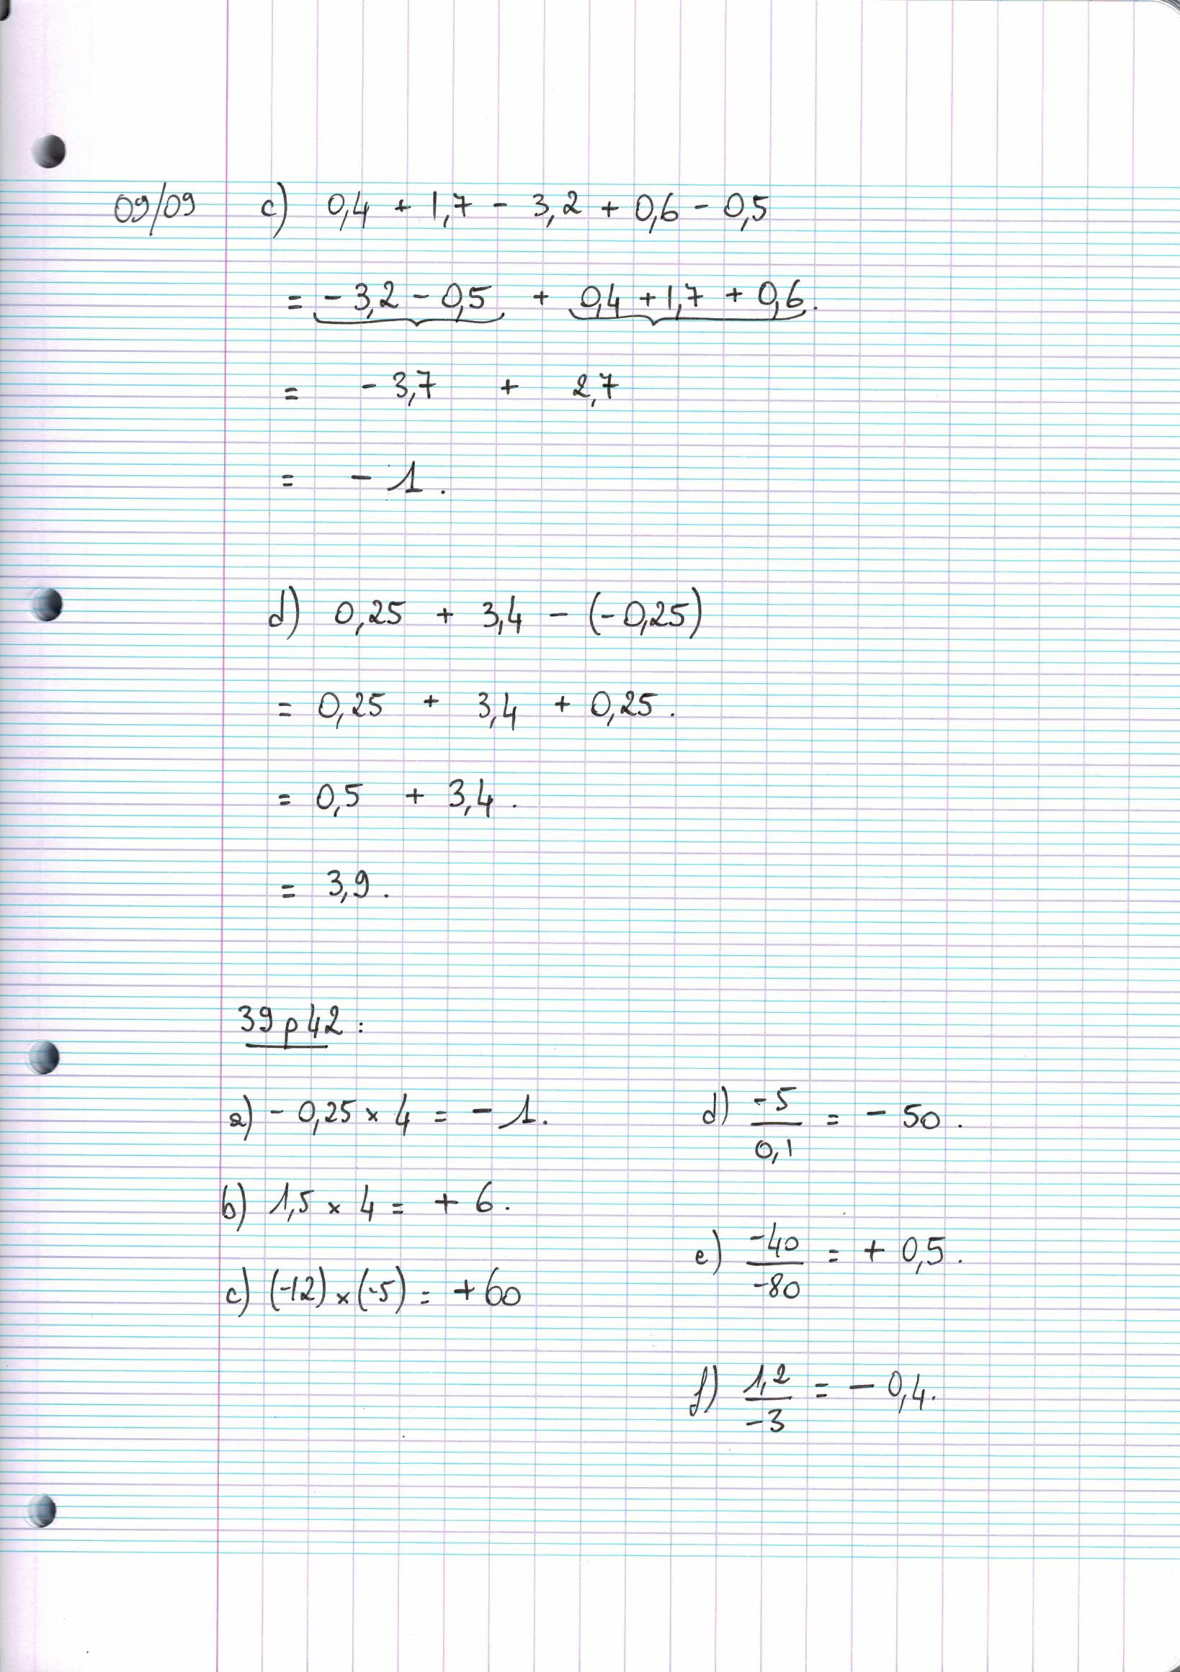 09/09 c) 0,4 + 1,7 - 3,2 + 0,6 - 0,5
= - 3,2 - 0,5 + 0,4 + 1,7 + 0,6.
= - 3,7 + 2,7
= - 1.
d) 0,25 + 3,4 - (-0,25)
= 0,25 + 3,4 + 0,25.
= 0,5 + 3,4.
= 3,9.
39 p 42 :
a) - 0,25 × 4 = - 1.
b) 1,5 × 4 = + 6.
c) (-12) × (-5) = +60
d) -5/0,1 = - 50.
e) -40/-80 = + 0,5.
f) 1,2/-3 = - 0,4.